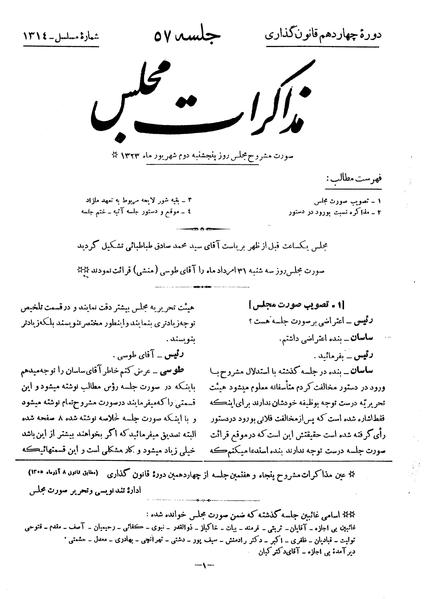 دورهٔ چهاردهم قانون گذاری
جلسه ۵۷
شمارهٔ مسلسل - ۱۳۱۴
مذاکرات مجلس
صورت مشروح مجلس روز پنجشنبه دوم شهریور ماه ۱۳۲۳ ※
فهرست مطالب:
۱ - تصویب صورت مجلس
۲ - مذاکره نسبت بورود در دستور
۳ - بقیه شور لایحه مربوط به تعهد مازاد
۴ - موقع و دستور جلسه آتیه - ختم جلسه
مجلس یکساعت قبل از ظهر بریاست آقای سید محمد صادق طباطبائی تشکیل گردید
صورت مجلس روز سه شنبه ۳۱ امرداد ماه را آقای طوسی (منشی) قرائت نمودند ※※
[۱ - تصویب صورت مجلس]
رئیس - اعتراضی بر صورت جلسه هست؟
ساسان - بنده اعتراضی داشتم.
رئیس - بفرمائید.
ساسان - بنده در جلسه گذشته با استدلال مشروح با
ورود در دستور مخالفت کردم متأسفانه معلوم میشود هیئت
تحریریه درست توجه بوظیفه خودشان ندارند برای اینکه
فقط اشاره شده است که پس از مخالفت فلانی بورود در دستور
رأی گرفته شده حقیقتش این است که در موقع قرائت
صورت جلسه درست توجه ندارند بنده استدعا میکنم که
هیئت تحریریه مجلس بیشتر دقت نمایند و در قسمت تلخیص
توجه زیادتری بنمایند و اینطور مختصر ننویسند بلکه زیادتر
بنویسند.
رئیس - آقای طوسی.
طوسی - عرض کنم خاطر آقای ساسان را توجه میدهم
باینکه در صورت جلسه رؤس مطالب نوشته میشود و این
قسمتی را که میفرمایند در صورت مشروح تمام نوشته میشود
و با اینکه صورت جلسه خلاصه نوشته شده ۸ صفحه شده
البته تصدیق میفرمائید که اگر بخواهند بیشتر از این باشد
خیلی زیاد میشود و کار مشکلی است و این قسمتهائیکه
※ عین مذاکرات مشروح پنجاه و هفتمین جلسه از چهاردهمین دورهٔ قانون گذاری (مطابق قانون ۸ آذر ماه ۱۳۰۵)
ادارهٔ تندنویسی و تحریر صورت مجلس
※※ اسامی غائبین جلسه گذشته که ضمن صورت مجلس خوانده شده:
غائبین بی اجازه - آقایان: تربتی - فرمند - بیات - خاکباز - ذوالفقدر - نبوی - کفائی - رحیمیان - آصف - مقدم - فتوحی
تولیت - قبادیان - ظفری - اکبر - دکتر رادمنش - سیف پور - دشتی - تهرانچی - بهادری - معدل - حشمتی
دیرآمدهٔ بی اجازه - آقای دکتر کیان
-۱-